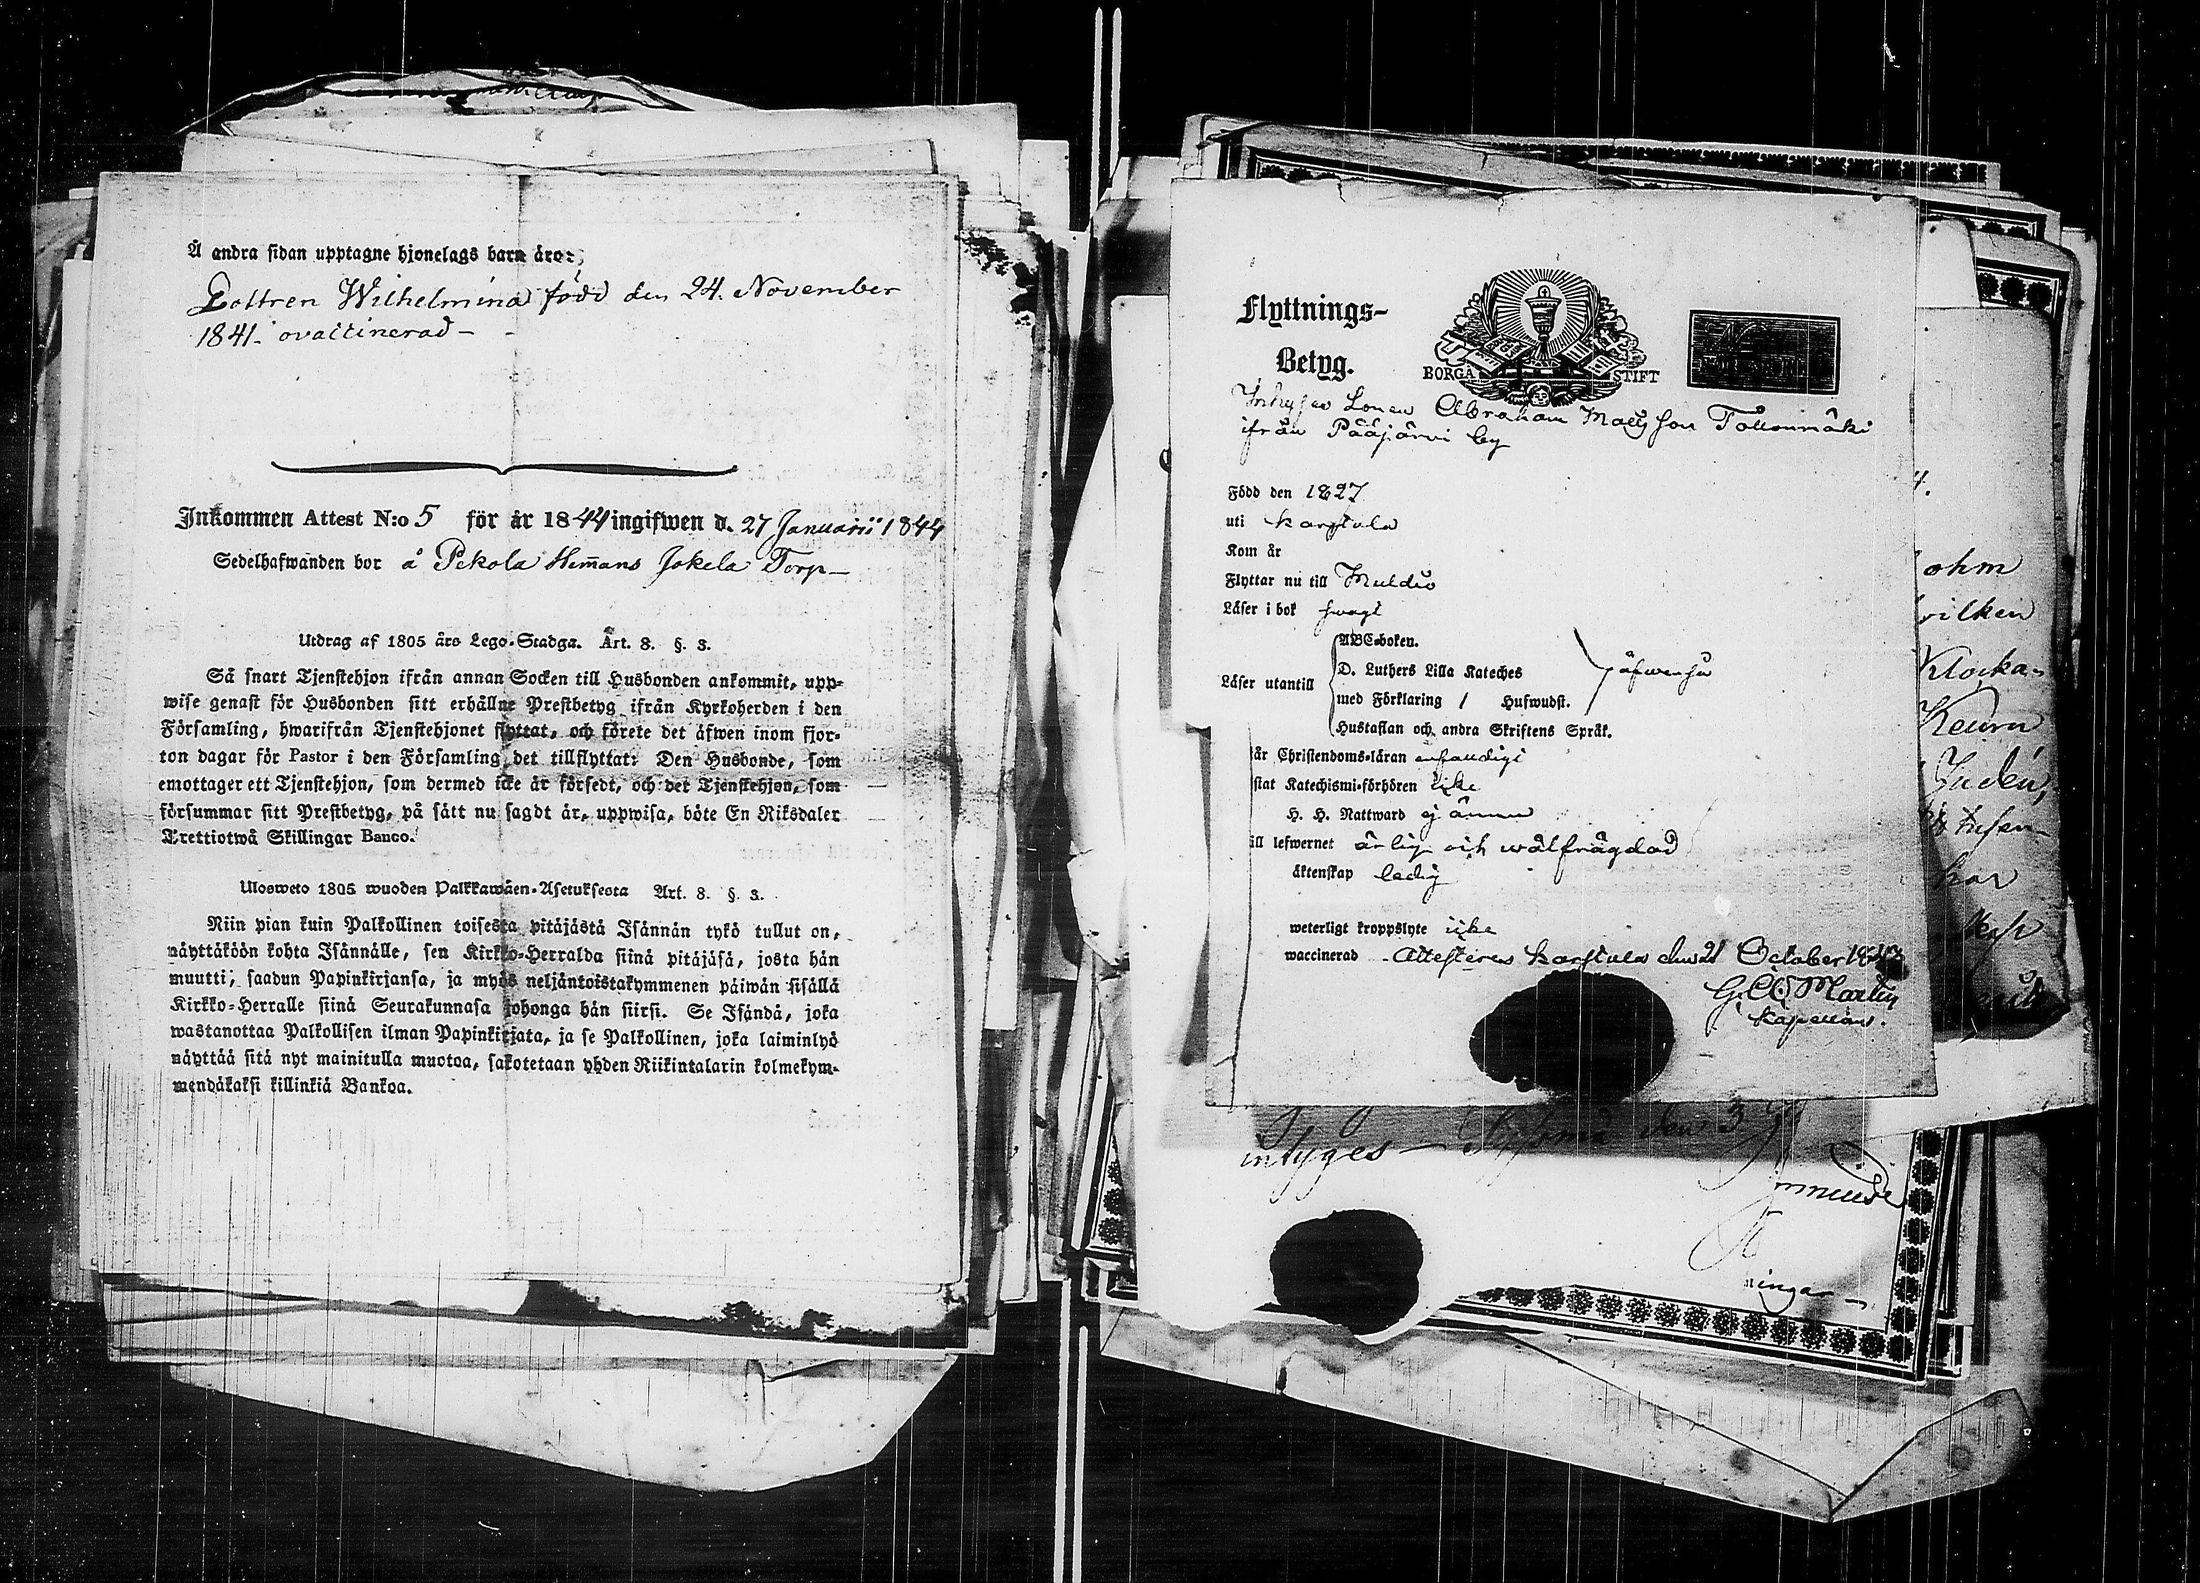 Å andra sidan upptagne hjonelags barn äro:
Dottren Wilhelmina född den 24. November
1841. ovaccinerad –
Inkommen Attest N:o 5 för år 1844 ingifwen d. 27 Januarii 1844
Sedelhafwanden bor å Pekola Hemans Jokela Torp –
Utdrag af 1805 års Lego-Stadga. Art. 8. §. 3.
Så snart Tjenstehjon ifrån annan Socken till Husbonden ankommit, upp-
wise genast för Husbonden sitt erhållne Prestbetyg ifrån Kyrkoherden i den
Församling, hwarifrån Tjenstehjonet flyttat, och förete det äfwen inom fjor-
ton dagar för Pastor i den Församling det tillflyttat: Den Husbonde, som
emottager ett Tjenstehjon, som dermed icke är försedt, och det Tjenstehjon, som
försummar sitt Prestbetyg, på sätt nu sagdt är, uppwisa, böte En Riksdaler
Trettiotwå Skillingar Banco.
Ulosweto 1805 wuoden Palkkawäen-Asetuksesta Art. 8. §. 3.
Niin pian kuin Palkollinen toisesta pitäjästä Isännän tykö tullut on,
näyttäköön kohta Isännälle, sen Kirkko-Herralda siinä pitäjäsä, josta hän
muutti, saadun Papinkirjansa, ja myös neljäntoistakymmenen päiwän sisällä
Kirkko-Herralle siinä Seurakunnasa johonga hän siirsi. Se Isändä, joka
wastanottaa Palkollisen ilman Papinkirjata, ja se Palkollinen, joka laiminlyö
näyttää sitä nyt mainitulla muotoa, sakotetaan yhden Riikintalarin kolmekym-
mendäkaksi killinkiä Bankoa.
Flyttnings-
Betyg.
BORGÅ STIFT
Inhyses Sonen Abraham Matts son
ifrån Pääjärvi by
Född den 1827
uti Karstula
Kom år
Flyttar nu till Muldia
Läser i bok swagt
Läser utantill
ABC-boken.
D. Luthers Lilla Kateches
med Förklaring / Hufwudst.
Hustaflan och andra Skriftens Språk.
äfwenså
är Christendoms-läran enfaldigt
stat Katechismi-förhören icke
H. H. Nattward ej ännu
ill lefwernet ärlig och wälfrägdad
äktenskap ledig
weterligt kroppslyte icke
waccinerad Attesteras Karstula den 21 October
G. Martin
Kapellan.
ohm
vilken
Klocka-
Keuru
har
intyges – den 3
ningar